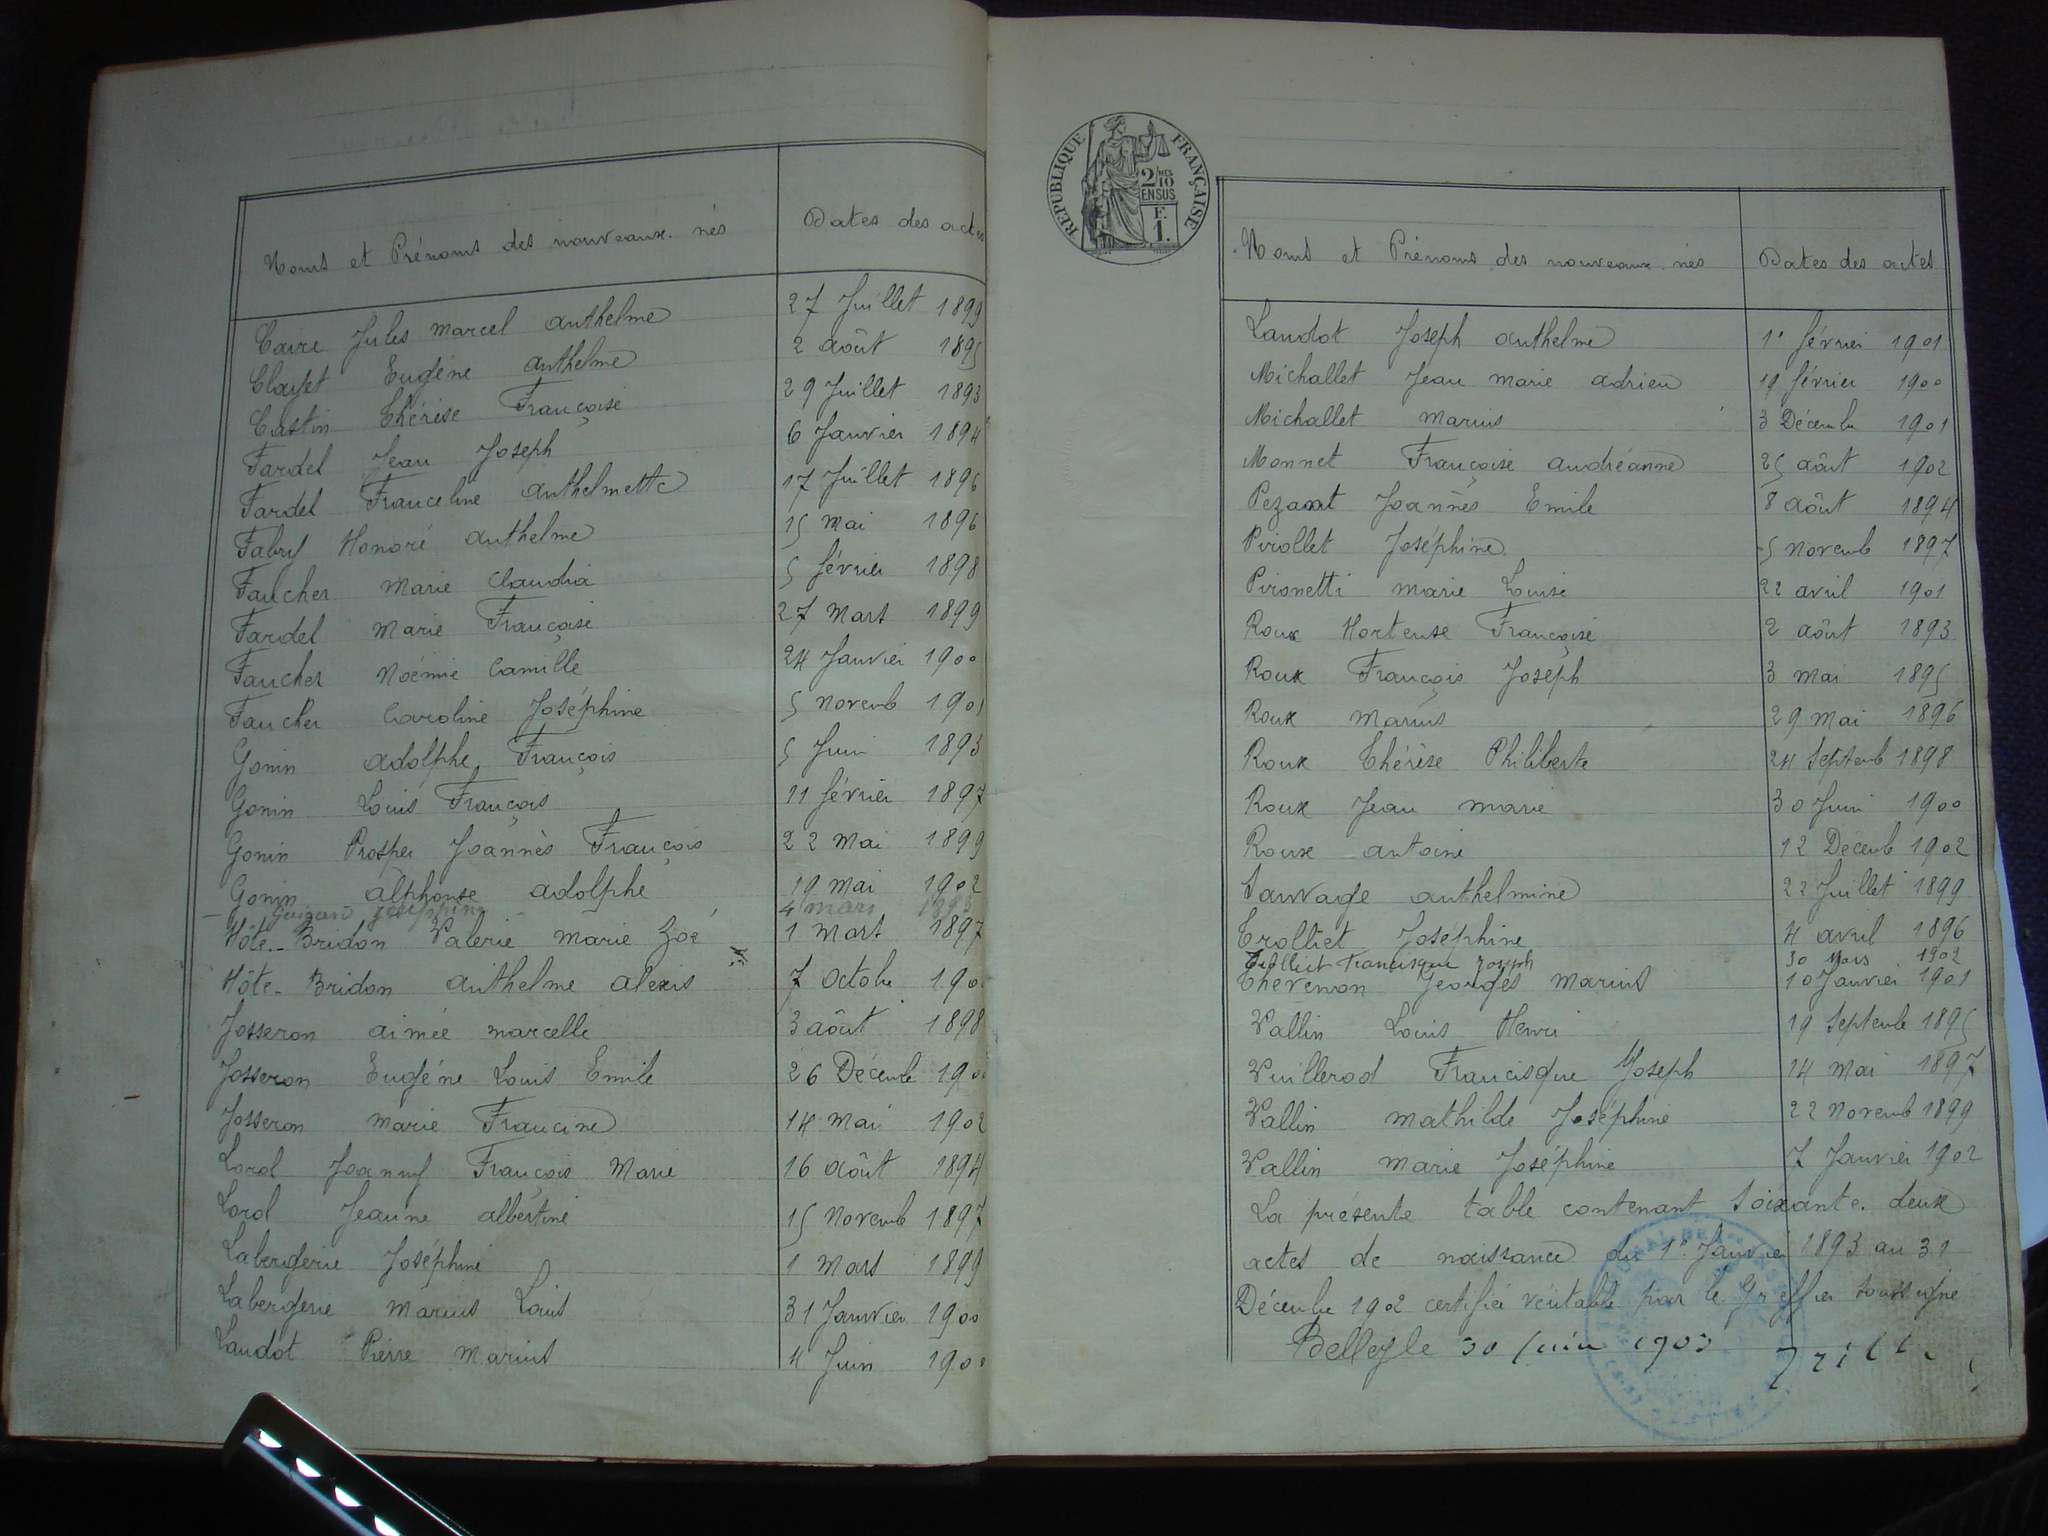 Noms et Prénoms des nouveaux-nés Dates des actes
Caire Jules Marcel Anthelme 27 Juillet 1899
Clayet Eugène Anthelme 2 août 1895
Custin Thérèse Françoise 29 Juillet 1893
Fardel Jean Joseph 6 Janvier 1894
Fardel Franceline Anthelmette 17 Juillet 1896
Fabry Honoré Anthelme 15 Mai 1896
Faucher Marie Claudia 5 février 1898
Fardel Marie Françoise 27 Mars 1899
Faucher Noémie Camille 24 Janvier 1900
Faucher Caroline Joséphine 5 Novemb 1901
Gonin Adolphe François 5 Juin 1893
Gonin Louis François 11 février 1897
Gonin Prosper Joannès François 22 Mai 1899
Gonin Alphonse Adolphe 19 Mai 1902
Joséphine 4 mars
Hôte-Bridon Valerie Marie Zoé 1 Mars 1897
Hôte-Bridon Anthelme Alexis 7 Octobre
Josseron Aimée Marcelle 3 août 1898
Josseron Eugéne Louis Emile 26 Décembre
Josseron Marie Francine 14 Mai 1902
Lorol Joanny François Marie 16 août 1894
Lorol Jeanne Albertine 15 Novemb 1897
Labergerie Joséphine 1 Mars 1899
Labergerie Marius Louis 31 Janvier 1900
Laudot Pierre Marius 4 Juin 1900
REPUBLIQUE FRANÇAISE
2/10 EN SUS
F. 1.
Noms et Prénoms des nouveaux-nés Dates des actes
Laudot Joseph Anthelme 1er février 1901
Michallet Jean Marie Adrien 19 février 1900
Michallet Marius 3 Décembre 1901
Monnet Françoise Andréanne 25 août 1902
Pezant Joannès Emile 8 août 1894
Piriollet Joséphine 5 Novemb 1897
Pironetti Marie Louise 22 avril 1901
Roux Hortense Françoise 2 août 1893
Roux François Joseph 3 Mai 1895
Roux Marius 29 Mai 1896
Roux Thérèse Philiberte 24 Septemb 1898
Roux Jean Marie 30 Juin 1900
Roux Antoine 12 Decemb 1902
Sauvage Anthelmine 22 Juillet 1899
Trolliet Joséphine 4 avril 1896
Trolliet Francisque Joseph 30 Mars 1902
Thevenon Georges Marius 10 Janvier 1901
Vallin Louis Henri 19 Septembre 1895
Vuillerod Francisque Joseph 14 Mai 1897
Vallin Mathilde Joséphine 22 Novemb 1899
Vallin Marie Joséphine 7 Janvier 1902
La présente table contenant Soixante-deux
actes de naissance du 1er Janvier 1893 au 31
Décembre 1902 certifiée véritable par le Greffier soussigné
Belley le 30 Juin 1903